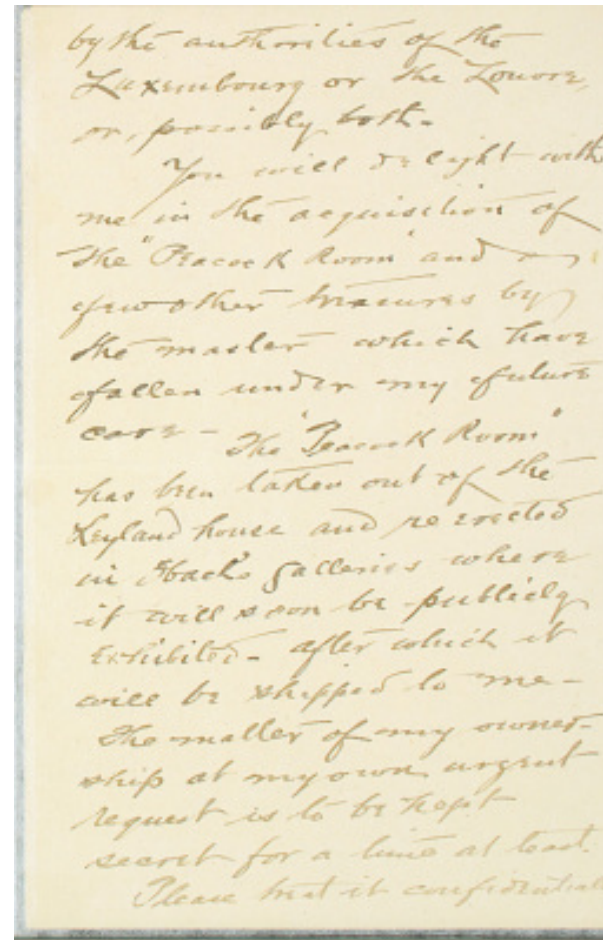 by the authorities of the
Luxembourg or the Louvre,
or, possibly both.
You will delight with
me in the acquisition of
the "Peacock Room" and a
few other treasures by
the master which have
fallen under my future
care - The "Peacock Room"
has been taken out of the
Leyland house and re erected
in galleries where
it will soon be publicly
exhibited - after which it
will be shipped to me -
The matter of my owner-
ship at my own urgent
request is to be kept
secret for a time at least.
Please treat it confidential